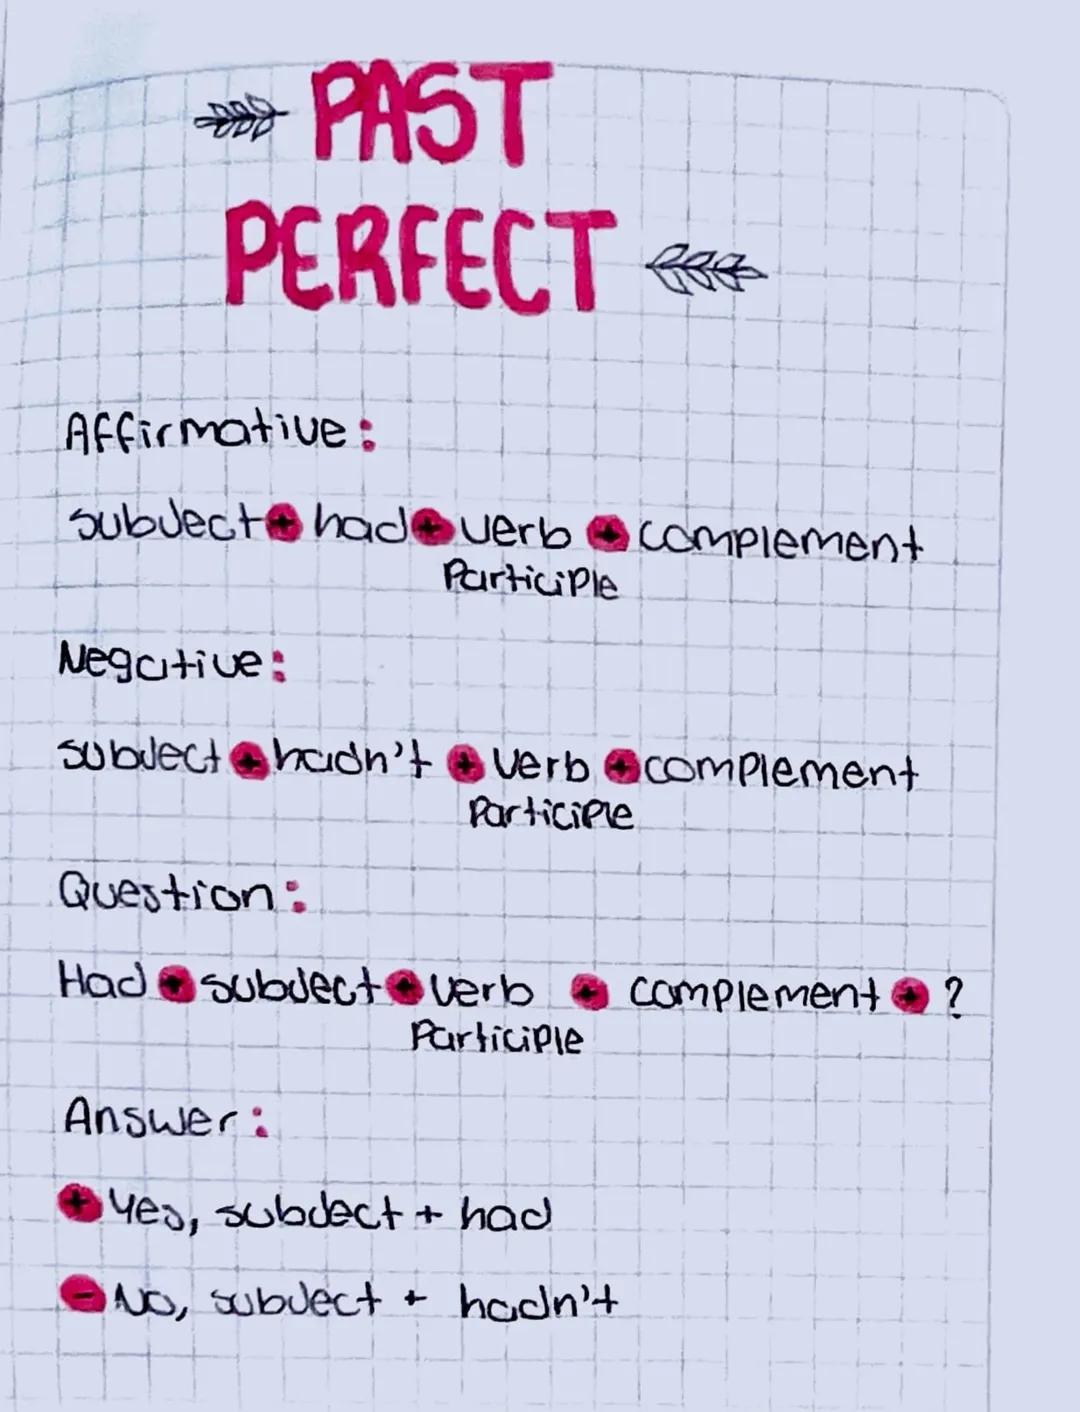 PAST
PERFECT
Affirmative:
subject + had + verb + complement
Participle
Negative:
subject + hadn't + verb + complement
Participle
Question:
Had + subject + verb + complement + ?
Participle
Answer:
+ Yes, subject + had
- No, subject + hadn't